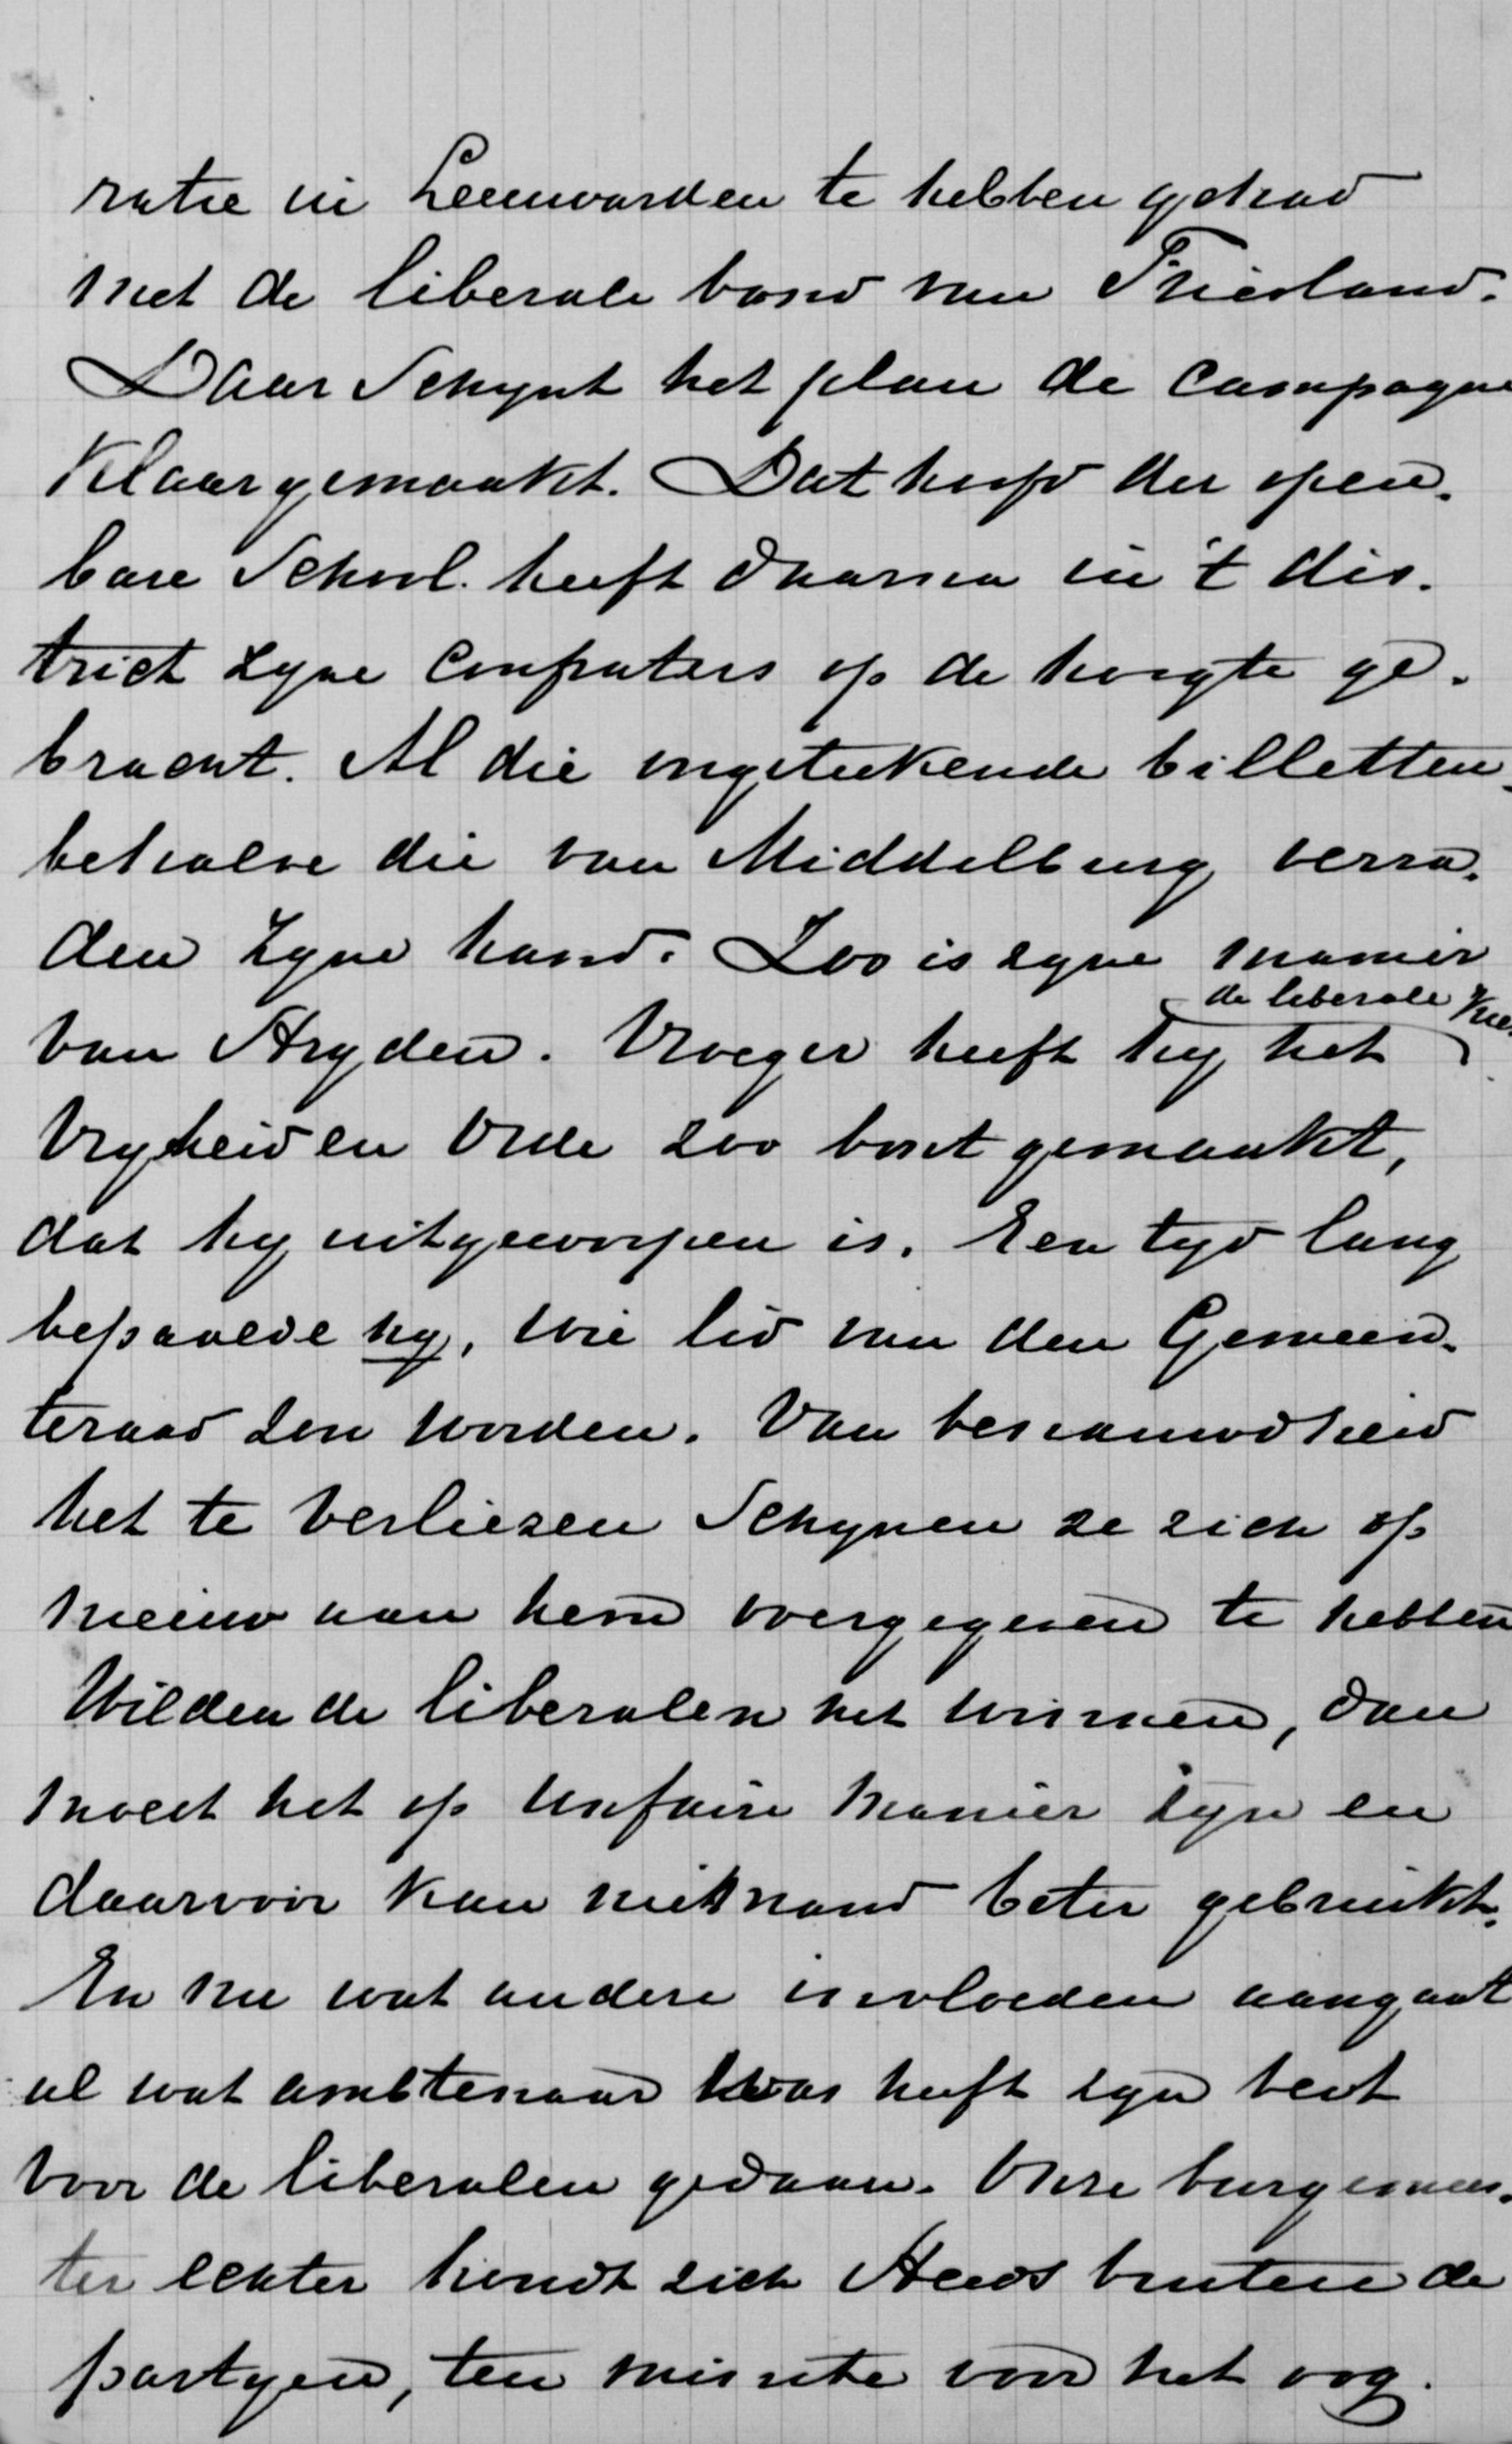 ratie in Leeuwarden te hebben gehad
met de liberale bond van Friesland.
Daar schynt het plan de campagne
klaargemaakt. Dat hoofd der open-
bare School heeft daarna in 't dis-
trict zyne confraters op de hoogte ge-
bracht. Al die ongeteekende billetten
behalve die van Middelburg verra-
den zyne hand. Zoo is zyne manier
de liberale
van stryden. Vroeger heeft hy het
Vryheid en Orde zoo bont gemaakt,
dat hy uitgeworpen is. Een tyd lang
bepaalde hy, wie lid van den Gemeen-
teraad zou worden. Van benauwdheid
het te verliezen schynen ze zich op
nieuw aan hem overgegeven te hebben
Wilden de liberalen het winnen, dan
moest het op unfaire manier zyn en
daarvoor kan niemand beter gebruikt.
En nu wat andere invloeden aangaat
al wat ambtenaar was heeft zyn best
voor de liberalen gedaan. Onze burgemees-
ter echter houdt zich steeds buiten de
partyen, ten minste voor het oog.